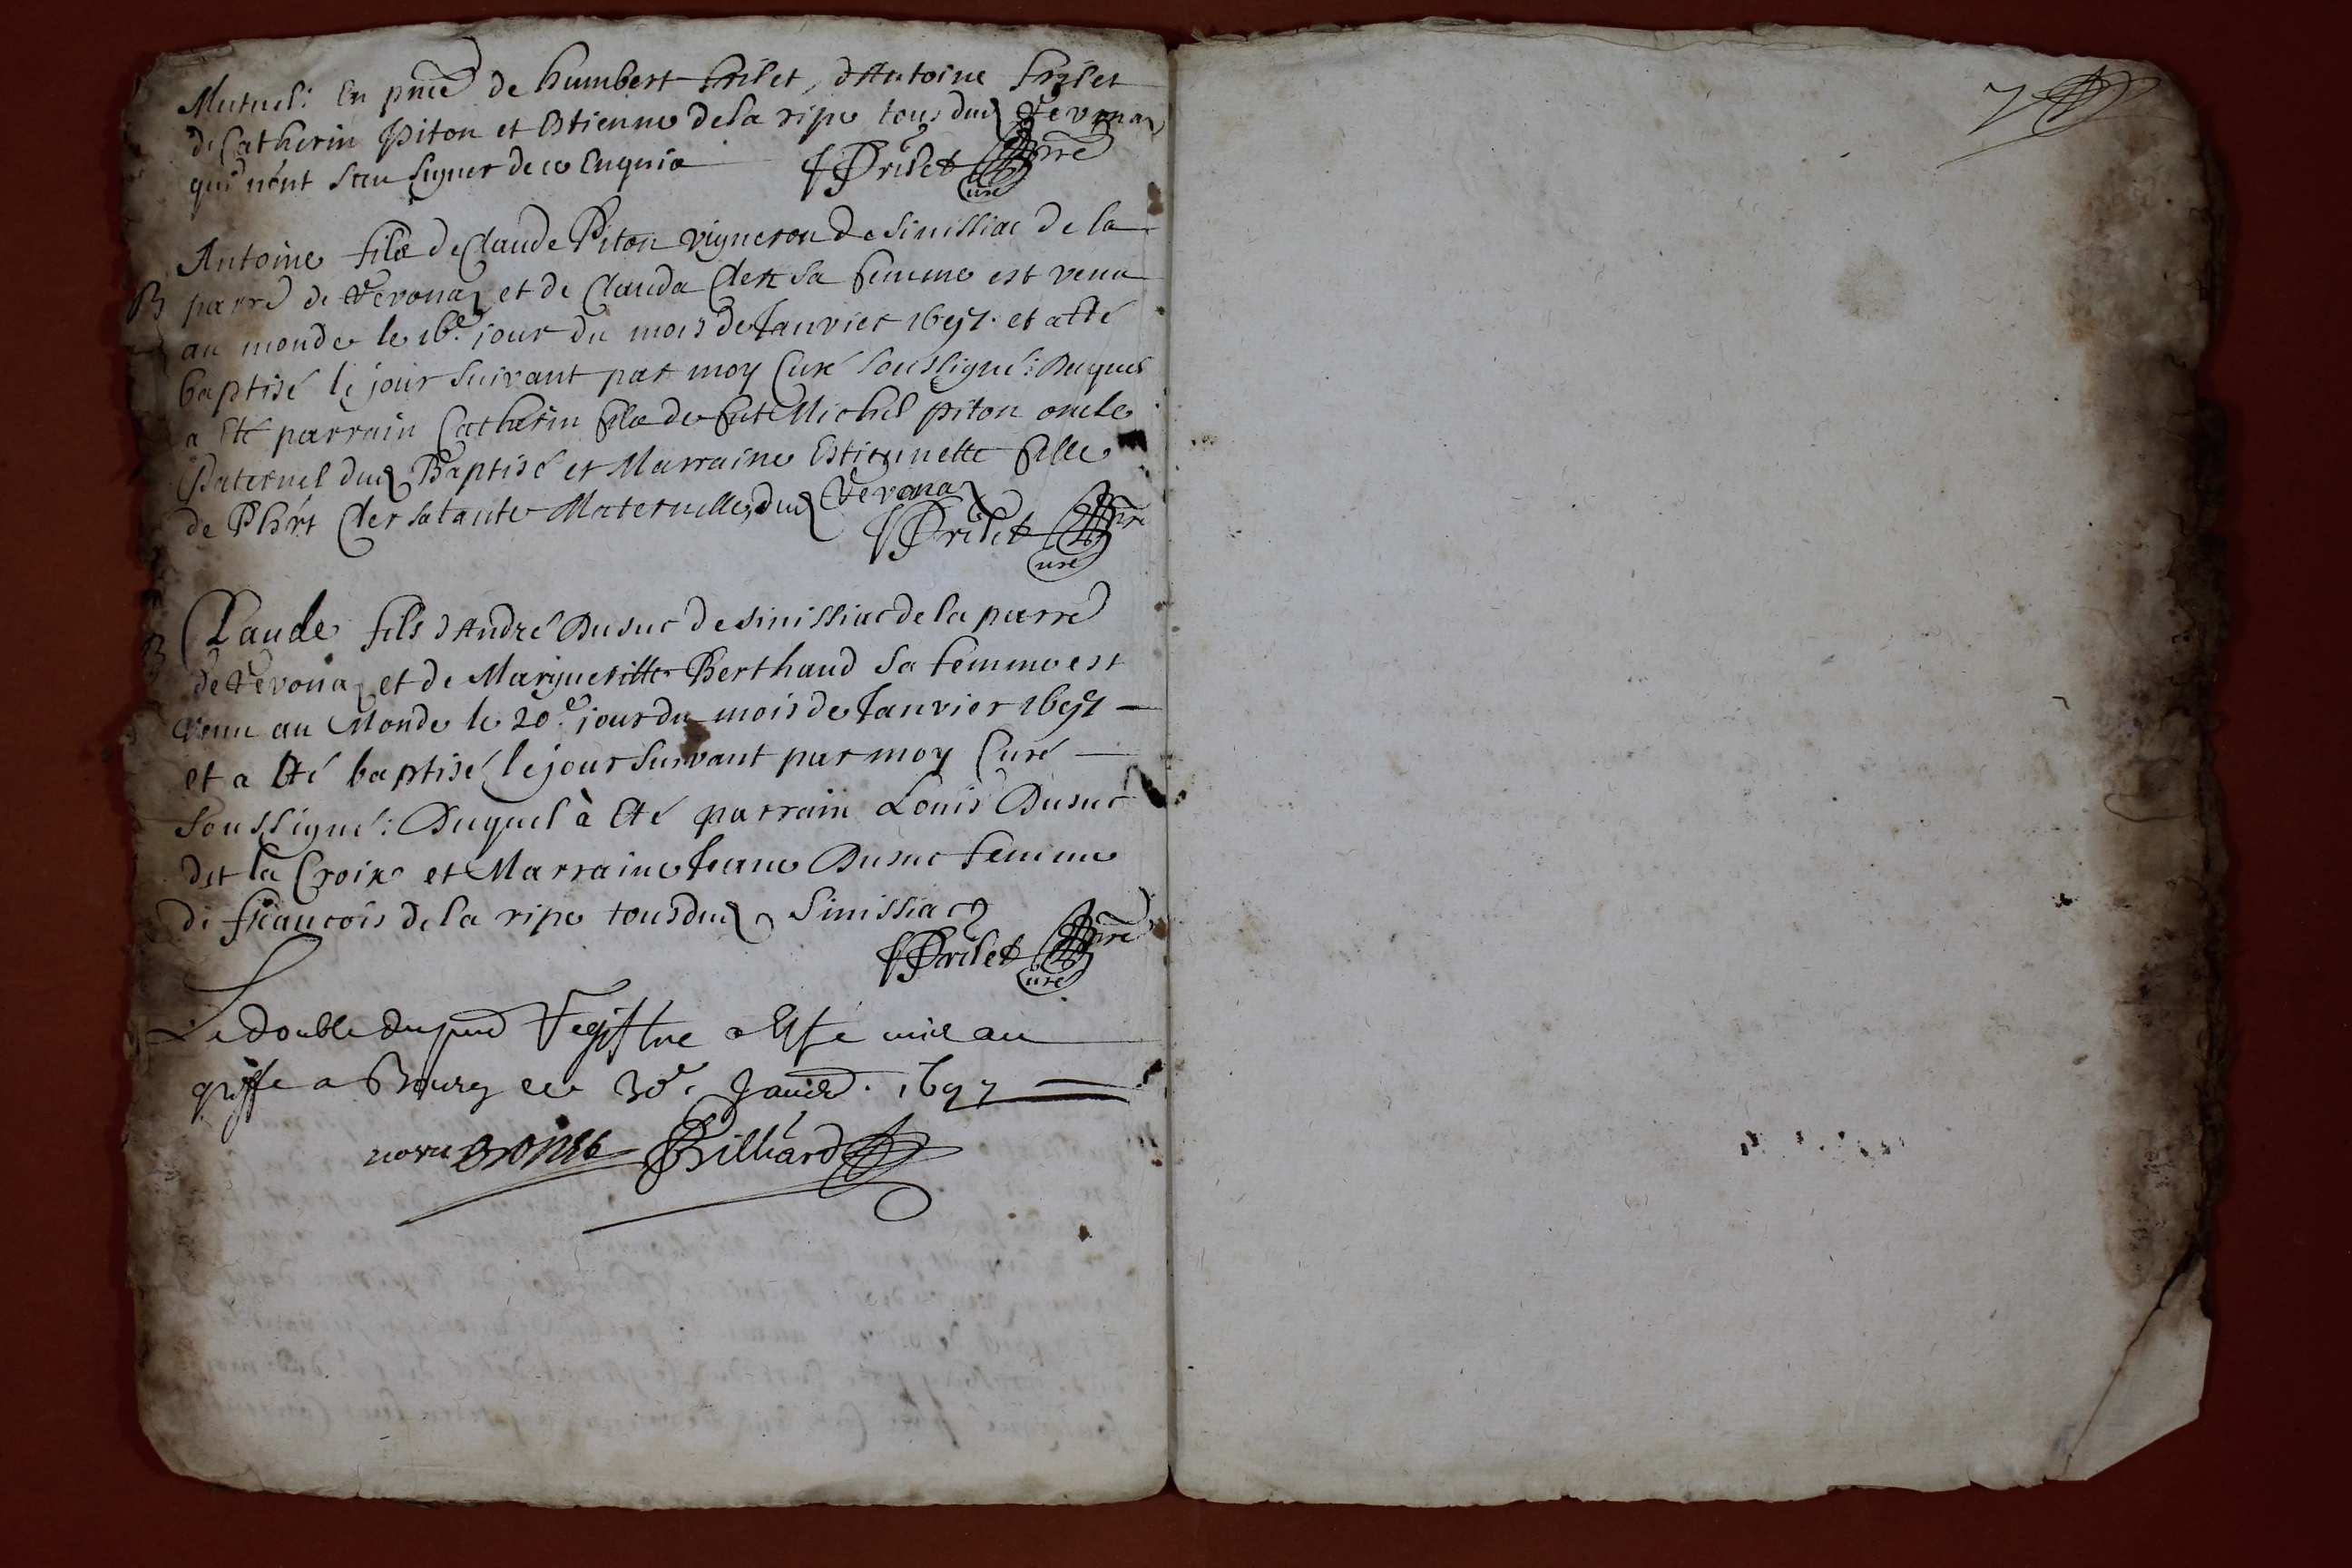 Mutuel: En pnce de humbert frilet, d'Antoine frilet
de Catherin Piton et Estienne de la ripe tous dud Vevona
qui n'ont sceu signer de ce Enquis
f Prilet pre
Curé
Antoine fils de Claude Piton vigneron de Sinissiac de la
B parre de Vevona et de Clauda Clerc sa femme est venu
au monde le 16e jour du mois de Janvier 1697. et a été
baptisé le jour suivant par moy Curé soussigné: Duquel
a Eté parrain Catherin fils de fut Michel piton oncle
Paternel dud Baptisé et Marraine Estiennette fille
de Phirt Cler sa tante Maternelle, dud Vevona
f Prilet pre
Curé
Claude fils d'André Dusuc de Sinissiac de la parre
B de Vevona et de Marguerite Berthaud sa femme est
venu au Monde le 20e jour du mois de Janvier 1697
et a Eté baptisé le jour suivant par moy Curé
soussigné: Duquel à Eté parrain Louis Dusuc
dit la Croix et Marraine Jeane Dusuc femme
de françois de la ripe tous dud Sinissiac
f Prilet pre
Curé
Le double du pnt Registre a Esté mis au
greffe a Bourg ce 30e Janvr. 1697
Billiard
7